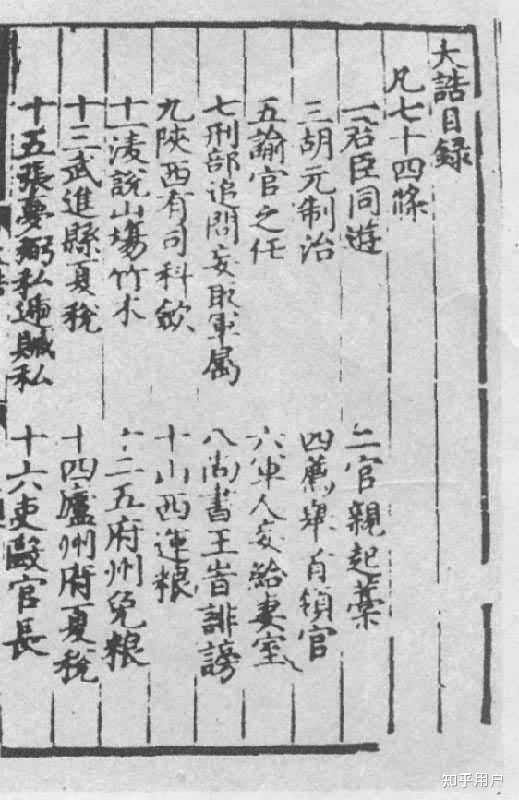 大誥目録
凡七十四條
一君臣同遊
二官親起藁
三胡元制治
四薦舉首領官
五諭官之任
六軍人妄給妻室
七刑部追問妄取軍属
八尚書王峕誹謗
九陝西有司科歛
十山西運粮
十一凌說山場竹木
十二五府州免粮
十三武進縣夏稅
十四廬州府夏稅
十五張夢弼私逓贓私
十六吏毆官長
知乎用户